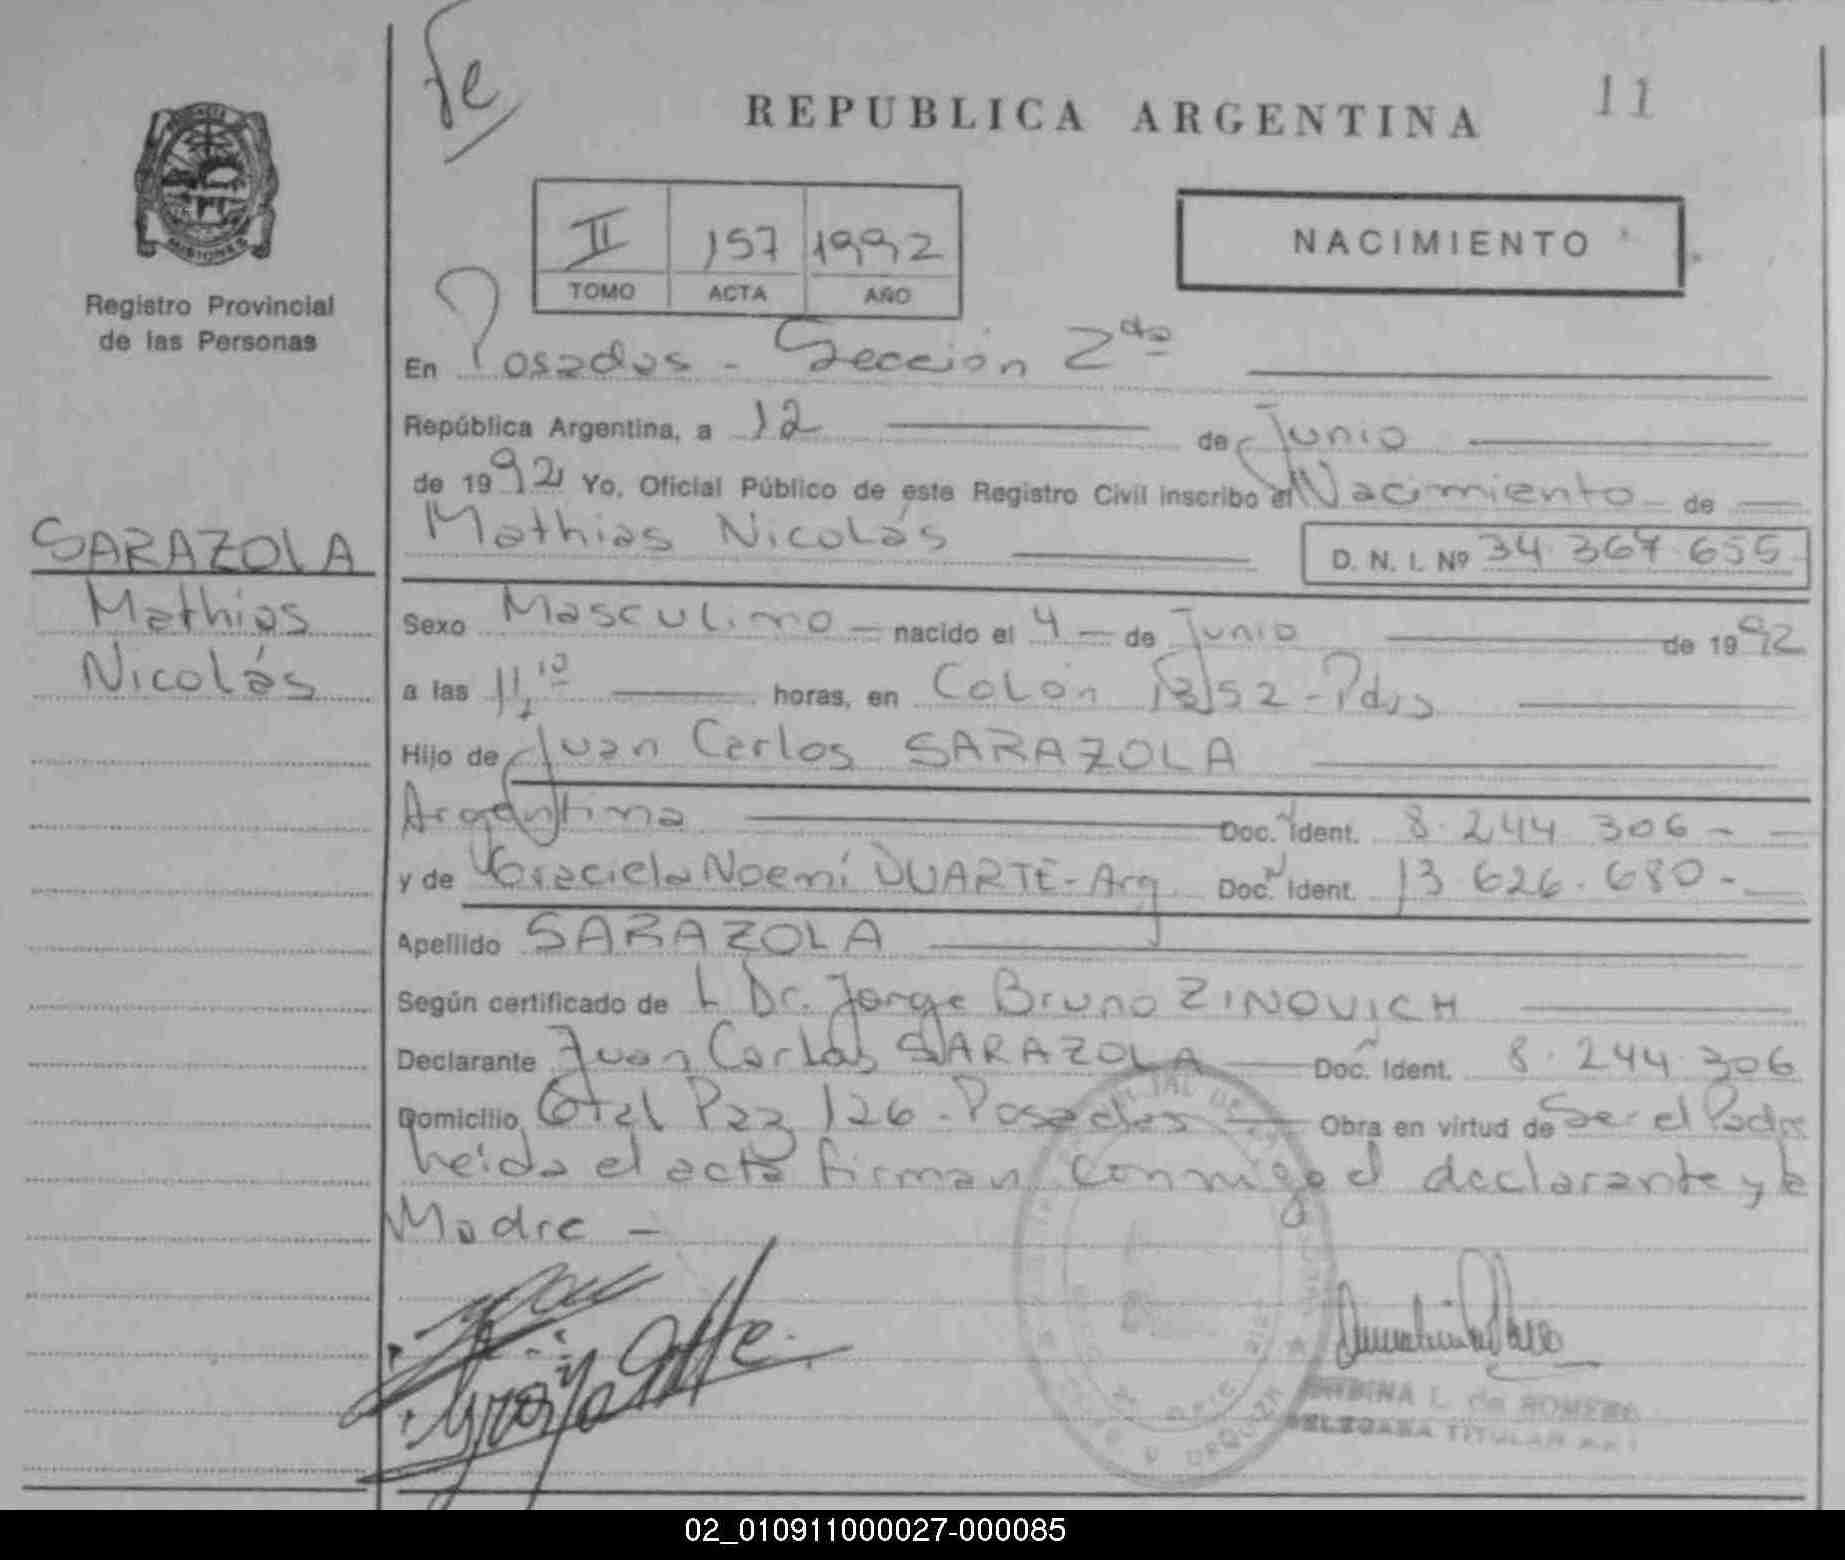 Je
REPUBLICA ARGENTINA
11
MISIONES
Registro Provincial
de las Personas
II 157 1992
TOMO ACTA AÑO
NACIMIENTO
En Posadas - Sección 2da
República Argentina, a 12 de Junio
de 1992 Yo, Oficial Público de este Registro Civil inscribo el Nacimiento de
Mathias Nicolás D. N. I. Nº 34.367.655
SARAZOLA
Mathias
Nicolás
Sexo Masculino nacido el 4 de Junio de 1992
a las 11,10 horas, en Colón - Pdas
Hijo de Juan Carlos SARAZOLA
Argentina Doc. Ident. 8.244.306 -
y de Graciela Noemí DUARTE - Arg Doc. Ident. 13.626.680 -
Apellido SARAZOLA
Según certificado de Dr. Jorge Bruno ZINOVICH
Declarante Juan Carlos SARAZOLA Doc. Ident. 8.244.306
Domicilio Gral Paz 126 - Posadas Obra en virtud de Ser el Padre
heida el acta firman conmigo el declarante y la
Madre -
L. de ROMERO
TITULAR
02_010911000027-000085